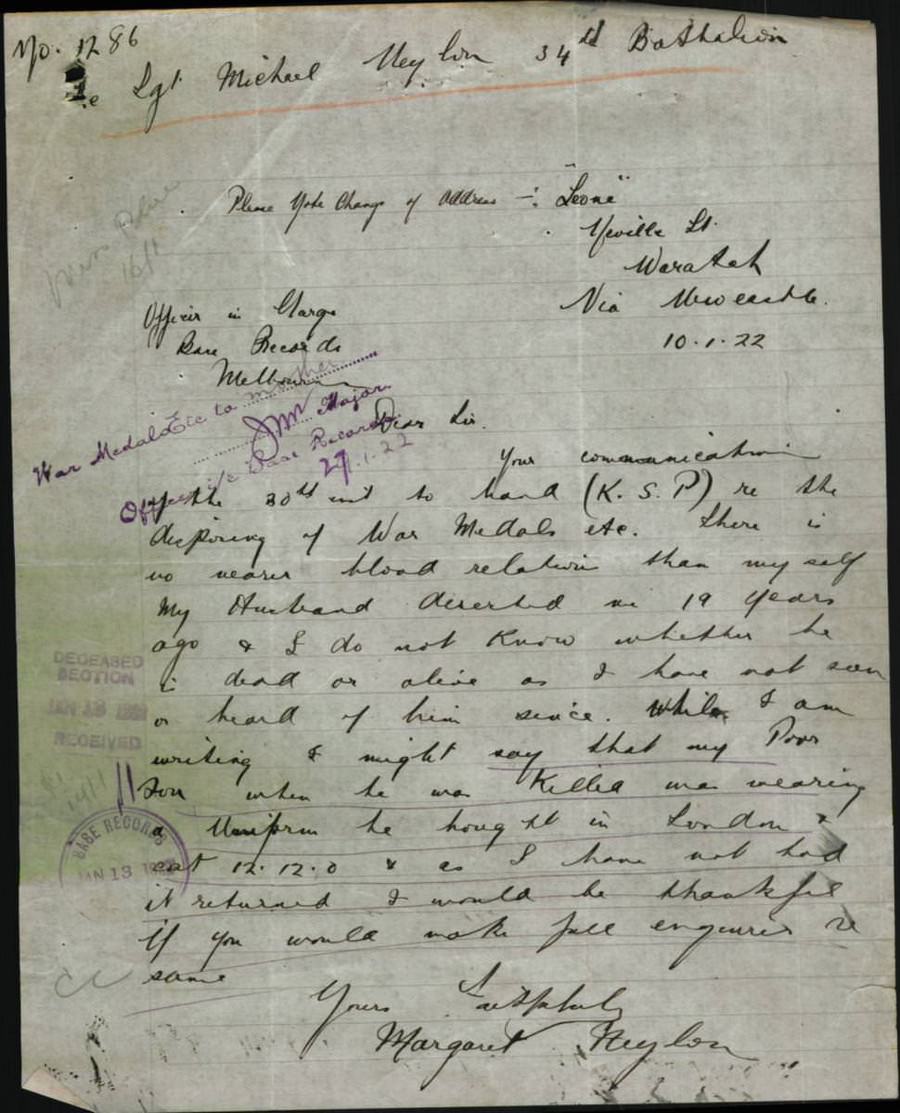 No. 1286
re Sgt Michael Neylon 34th Battalion
Please Note Change of Address -: "Leone"
Neville St.
Waratah
Via Newcastle.
10.1.22
Officer in Charge
Base Records
Melbourne
War Medals Etc to mother
Major
Officer i/c Base Records
27.1.22
Dear Sir.
Your communication
of the 30th ult to hand (K.S.P) re the
disposing of War Medals etc. There is
no nearer blood relation than my self
My Husband deserted me 19 years
ago & I do not Know whether he
is dead or alive as I have not seen
or heard of him since. While I am
writing I might say that my Poor
Son when he was Killed was wearing
a Uniform he bought in London &
cost 12.12.0 & as I have not had
it returned I would be thankful
if you would make full enquires re
same
Yours Faithfully
Margaret Neylon
DECEASED
SECTION
JAN 13
RECEIVED
14/1
BASE RECORDS
JAN 13 1922